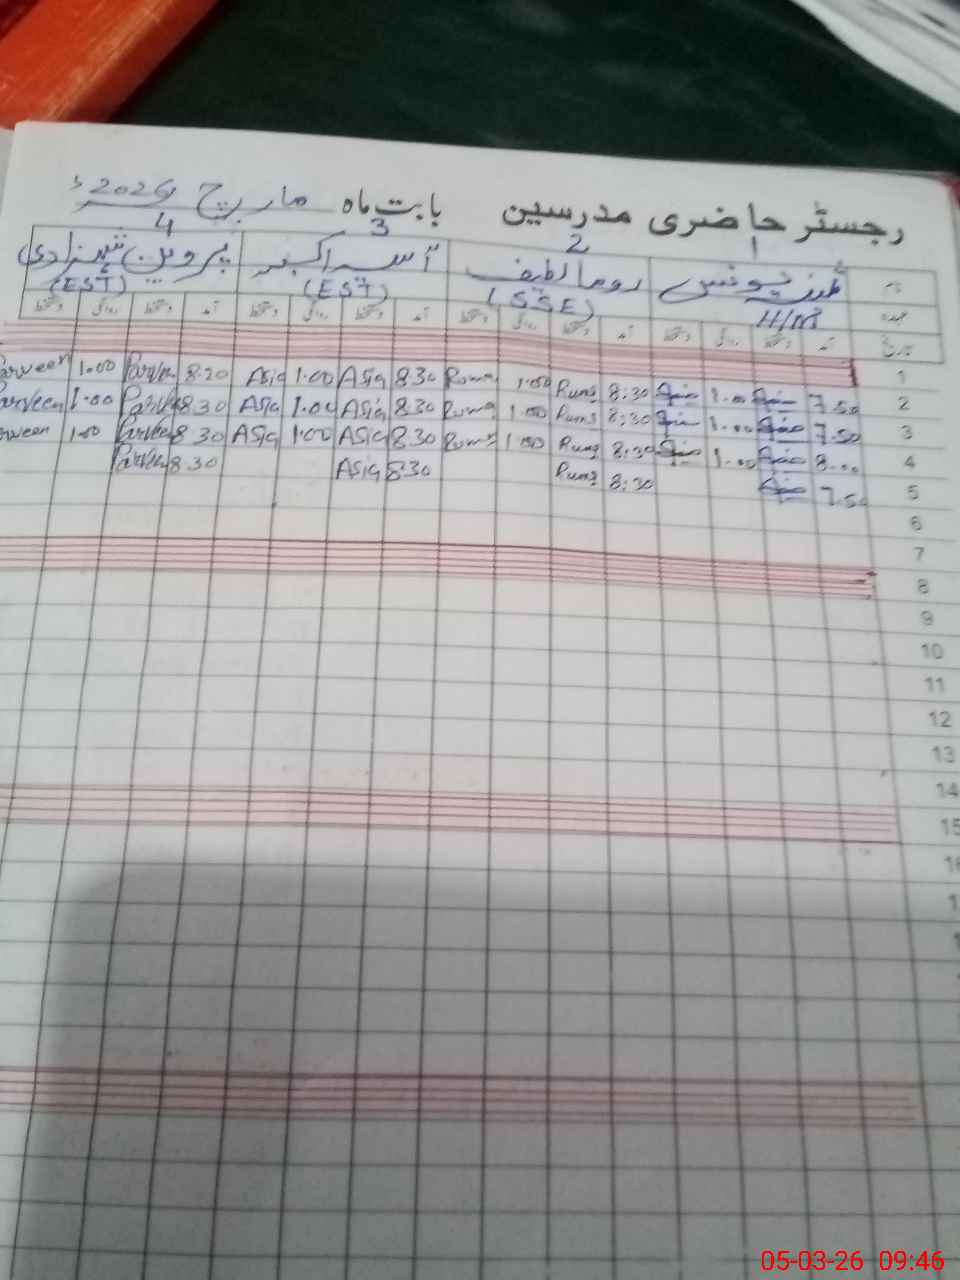 رجسٹر حاضری مدرسین بابت ماہ مارچ 2026ء
1 2 3 4
نام یونس روما لطیف آسیہ اکبر پروین شہزادی
عہدہ H/M (SSE) (EST) (EST)
تاریخ آمد دستخط روانگی دستخط آمد دستخط روانگی دستخط آمد دستخط روانگی دستخط آمد دستخط روانگی دستخط
1
2 7.50 1.00 8:30 Ruma 1.00 Ruma 8.30 Asia 1.00 Asia 8.20 Parveen 1.00 Parveen
3 7.50 1.00 8:30 Ruma 1.00 Ruma 8.30 Asia 1.00 Asia 8.30 Parveen 1.00 Parveen
4 8.00 1.00 8:30 Ruma 1.00 Ruma 8.30 Asia 1.00 Asia 8.30 Parveen 1.00 rween
5 7.50 8:30 Ruma 8.30 Asia 8.30 Parveen
6
7
8
9
10
11
12
13
14
15
16
05-03-26 09:46